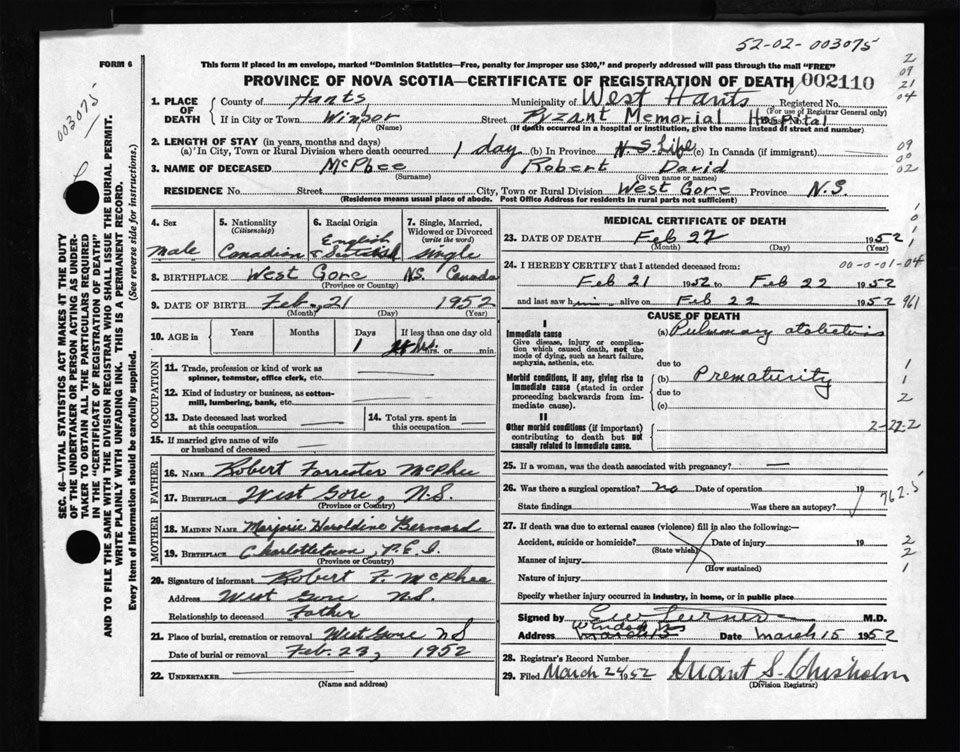 52-02-003075
FORM 6
This form if placed in an envelope, marked "Dominion Statistics—Free, penalty for improper use $300," and properly addressed will pass through the mail "FREE"
PROVINCE OF NOVA SCOTIA—CERTIFICATE OF REGISTRATION OF DEATH 002110
003075
2
09
21
04
1. PLACE OF DEATH { County of Hants Municipality of West Hants Registered No.
(For use of Registrar General only)
If in City or Town Winsor Street Payzant Memorial Hospital
(Name) (If death occurred in a hospital or institution, give the name instead of street and number)
2. LENGTH OF STAY (in years, months and days)
(a) In City, Town or Rural Division where death occurred 1 day (b) In Province N.S. Life (c) In Canada (if immigrant)
09
00
02
3. NAME OF DECEASED McPhee Robert David
(Surname) (Given name or names)
RESIDENCE No. Street City, Town or Rural Division West Gore Province N.S.
(Residence means usual place of abode. Post Office Address for residents in rural parts not sufficient)
SEC. 46—VITAL STATISTICS ACT MAKES IT THE DUTY
OF THE UNDERTAKER OR PERSON ACTING AS UNDER-
TAKER TO OBTAIN ALL THE PARTICULARS REQUIRED
IN THE "CERTIFICATE OF REGISTRATION OF DEATH"
AND TO FILE THE SAME WITH THE DIVISION REGISTRAR WHO SHALL ISSUE THE BURIAL PERMIT.
WRITE PLAINLY WITH UNFADING INK. THIS IS A PERMANENT RECORD.
Every item of information should be carefully supplied. (See reverse side for instructions.)
4. Sex
male
5. Nationality
(Citizenship)
Canadian
6. Racial Origin
English
& Scottish
7. Single, Married,
Widowed or Divorced
(write the word)
single
8. BIRTHPLACE West Gore N.S. Canada
(Province or Country)
9. DATE OF BIRTH Feb. 21 1952
(Month) (Day) (Year)
10. AGE in Years Months Days If less than one day old
1 hrs. or min.
OCCUPATION
11. Trade, profession or kind of work as
spinner, teamster, office clerk, etc.
12. Kind of industry or business, as cotton-
mill, lumbering, bank, etc.
13. Date deceased last worked
at this occupation
14. Total yrs. spent in
this occupation
15. If married give name of wife
or husband of deceased
FATHER
16. NAME Robert Forrester McPhee
17. BIRTHPLACE West Gore, N.S.
(Province or Country)
MOTHER
18. MAIDEN NAME Marjorie Geraldine Bernard
19. BIRTHPLACE Charlottetown, P.E.I.
(Province or Country)
20. Signature of informant Robert F. McPhee
Address West Gore N.S.
Relationship to deceased Father
21. Place of burial, cremation or removal West Gore NS
Date of burial or removal Feb. 23, 1952
22. UNDERTAKER
(Name and address)
MEDICAL CERTIFICATE OF DEATH
23. DATE OF DEATH Feb 22 1952
(Month) (Day) (Year)
24. I HEREBY CERTIFY that I attended deceased from: 00-0-01-04
Feb 21 1952 to Feb 22 1952
and last saw him alive on Feb 22 1952
961
CAUSE OF DEATH
I
Immediate cause (a) Pulmonary
Give disease, injury or complica-
tion which caused death, not the
mode of dying, such as heart failure,
asphyxia, asthenia, etc.
due to
Morbid conditions, if any, giving rise to
immediate cause (stated in order
proceeding backwards from im-
mediate cause).
(b) Prematurity
due to
(c)
1
1
2
II
Other morbid conditions (if important)
contributing to death but not
causally related to immediate cause.
25. If a woman, was the death associated with pregnancy?
26. Was there a surgical operation? no Date of operation 19
State findings Was there an autopsy?
762.5
27. If death was due to external causes (violence) fill in also the following:—
Accident, suicide or homicide? Date of injury 19
(State which)
Manner of injury
(How sustained)
Nature of injury
2
2
1
Specify whether injury occurred in industry, in home, or in public place
Signed by Turner M.D.
Windsor NS
Address March 15 Date March 15 1952
28. Registrar's Record Number
29. Filed March 24 1952 Grant S. Chisholm
(Division Registrar)